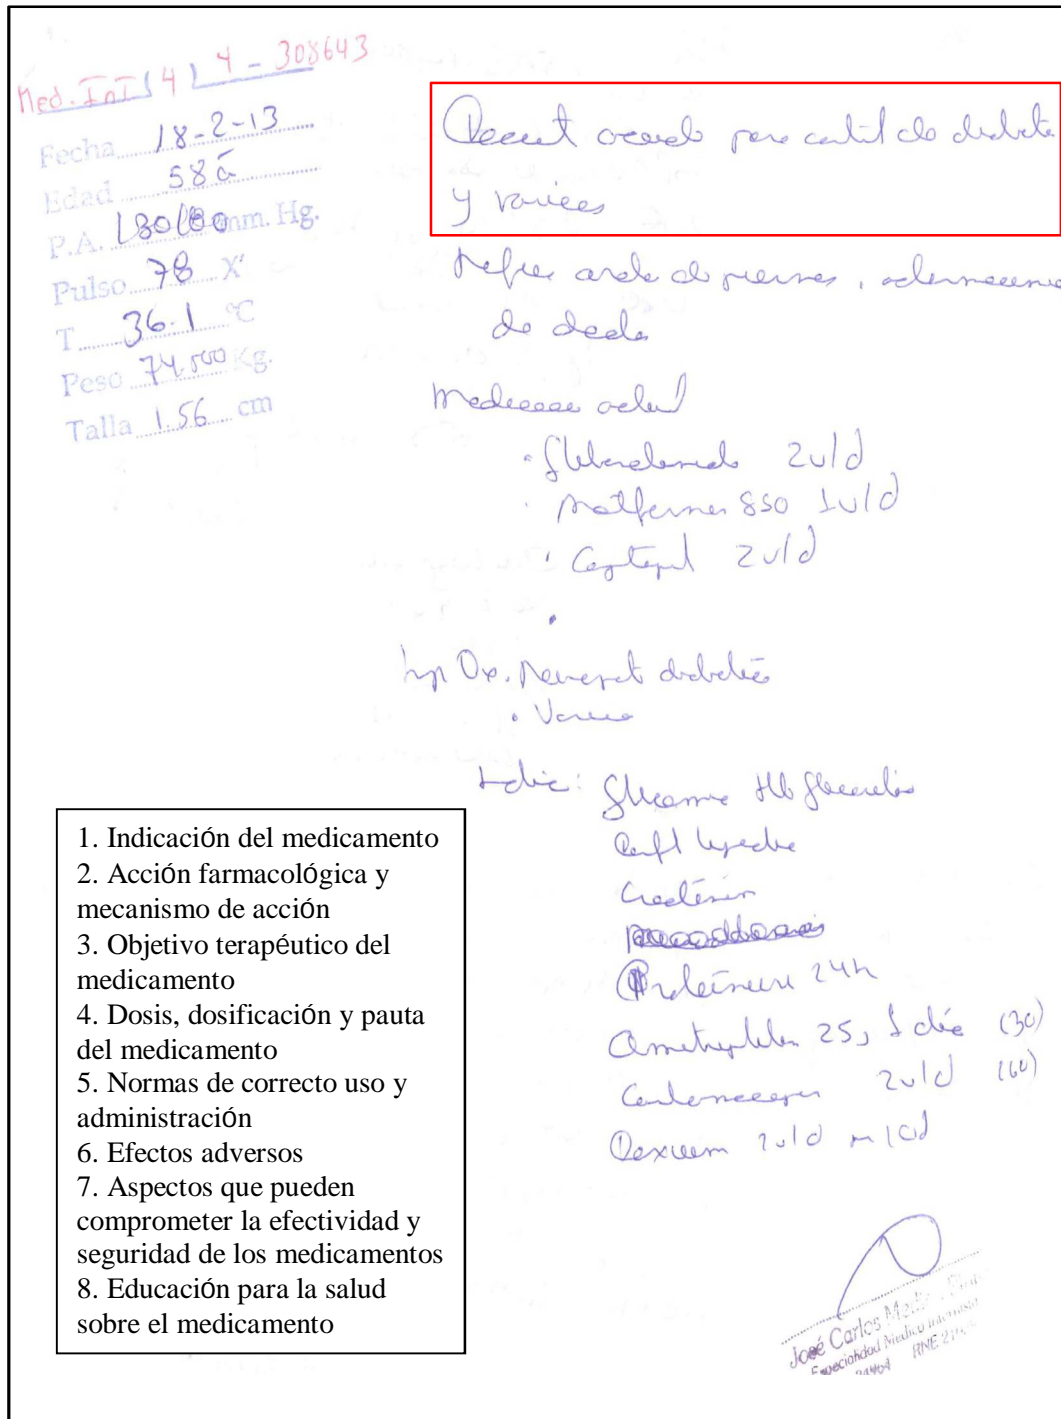 Med. Int 4 4 - 308643
Fecha 18-2-13
Edad 58 a
P.A. 130/80 mm. Hg.
Pulso 78 X'
T 36.1 °C
Peso 74.500 Kg.
Talla 1.56 cm
control de diabetes
y varices
Refiere de piernas,
de
actual
• Glibenclamida 2v/d
• Metformina 850 1v/d
• Captopril 2v/d
•
Imp Dx. Neuropat diabetica
• Varices
Indic: Glicemia Hb Glucosilada
Perfil lipidico
Creatinin
Proteinuria 24h
Amitriptilina 25, 1 dia (30)
2v/d (60)
2v/d
1. Indicación del medicamento
2. Acción farmacológica y
mecanismo de acción
3. Objetivo terapéutico del
medicamento
4. Dosis, dosificación y pauta
del medicamento
5. Normas de correcto uso y
administración
6. Efectos adversos
7. Aspectos que pueden
comprometer la efectividad y
seguridad de los medicamentos
8. Educación para la salud
sobre el medicamento
José Carlos
Especialidad Medico Internista
RNE